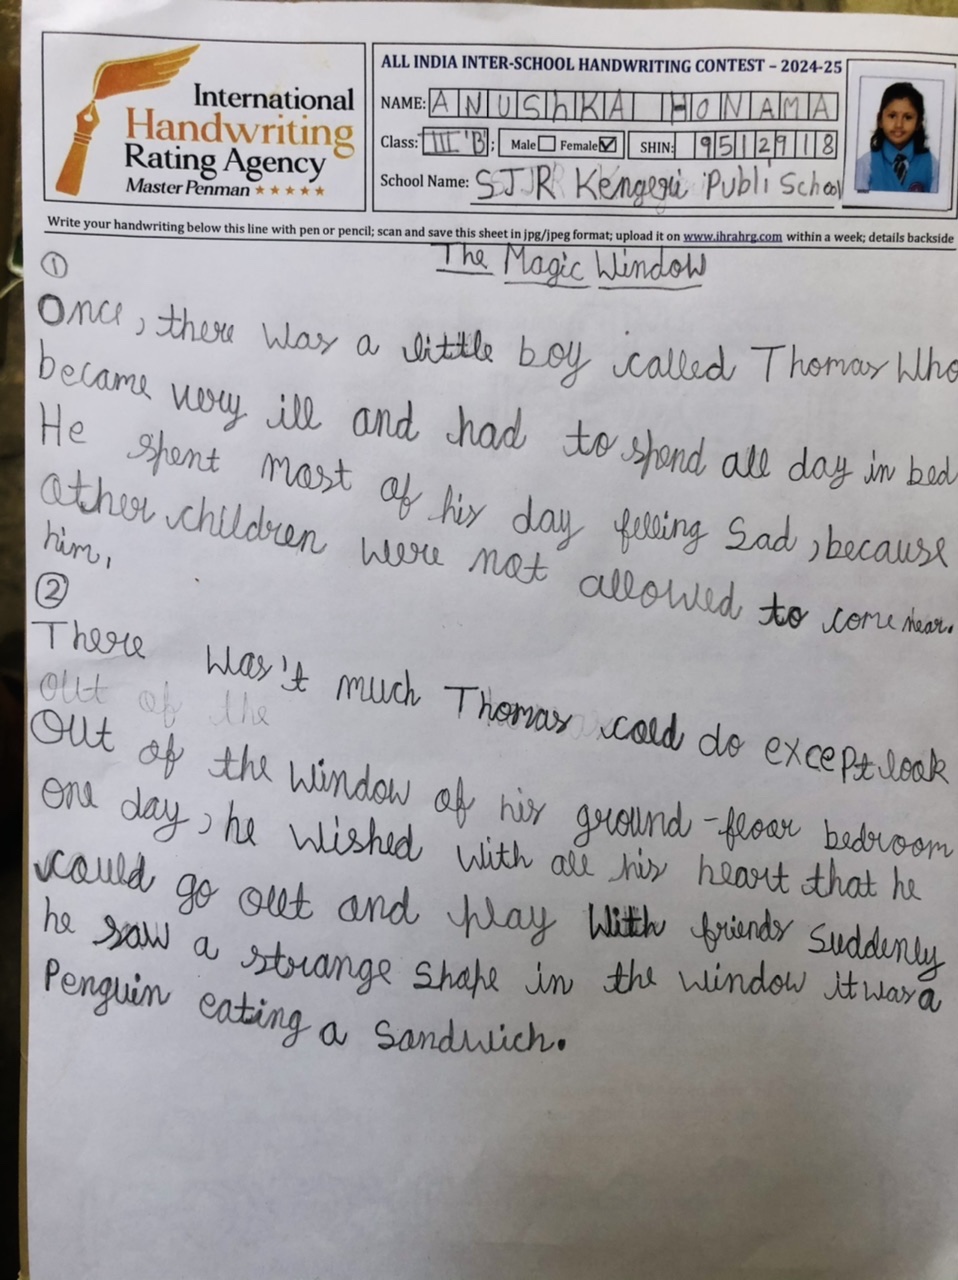 International
Handwriting
Rating Agency
Master Penman ★★★★★
ALL INDIA INTER-SCHOOL HANDWRITING CONTEST – 2024-25
NAME: ANUShKA HONAMA
Class: III 'B'; Male Female SHIN: 9512918
School Name: SJR Kengeri Publi School
Write your handwriting below this line with pen or pencil; scan and save this sheet in jpg/jpeg format; upload it on www.ihrahrg.com within a week; details backside
The Magic Window
①
Once, there was a little boy called Thomas Who
became very ill and had to spend all day in bed
He spent most of his day felling Sad, because
other children were not allowed to come near.
him,
②
There Was't much Thomas cold do except look
out of the
Out of the window of his ground-floor bedroom
one day, he wished with all his heart that he
could go out and play with friends Suddenly
he saw a strange shape in the window it was a
Penguin eating a Sandwich.